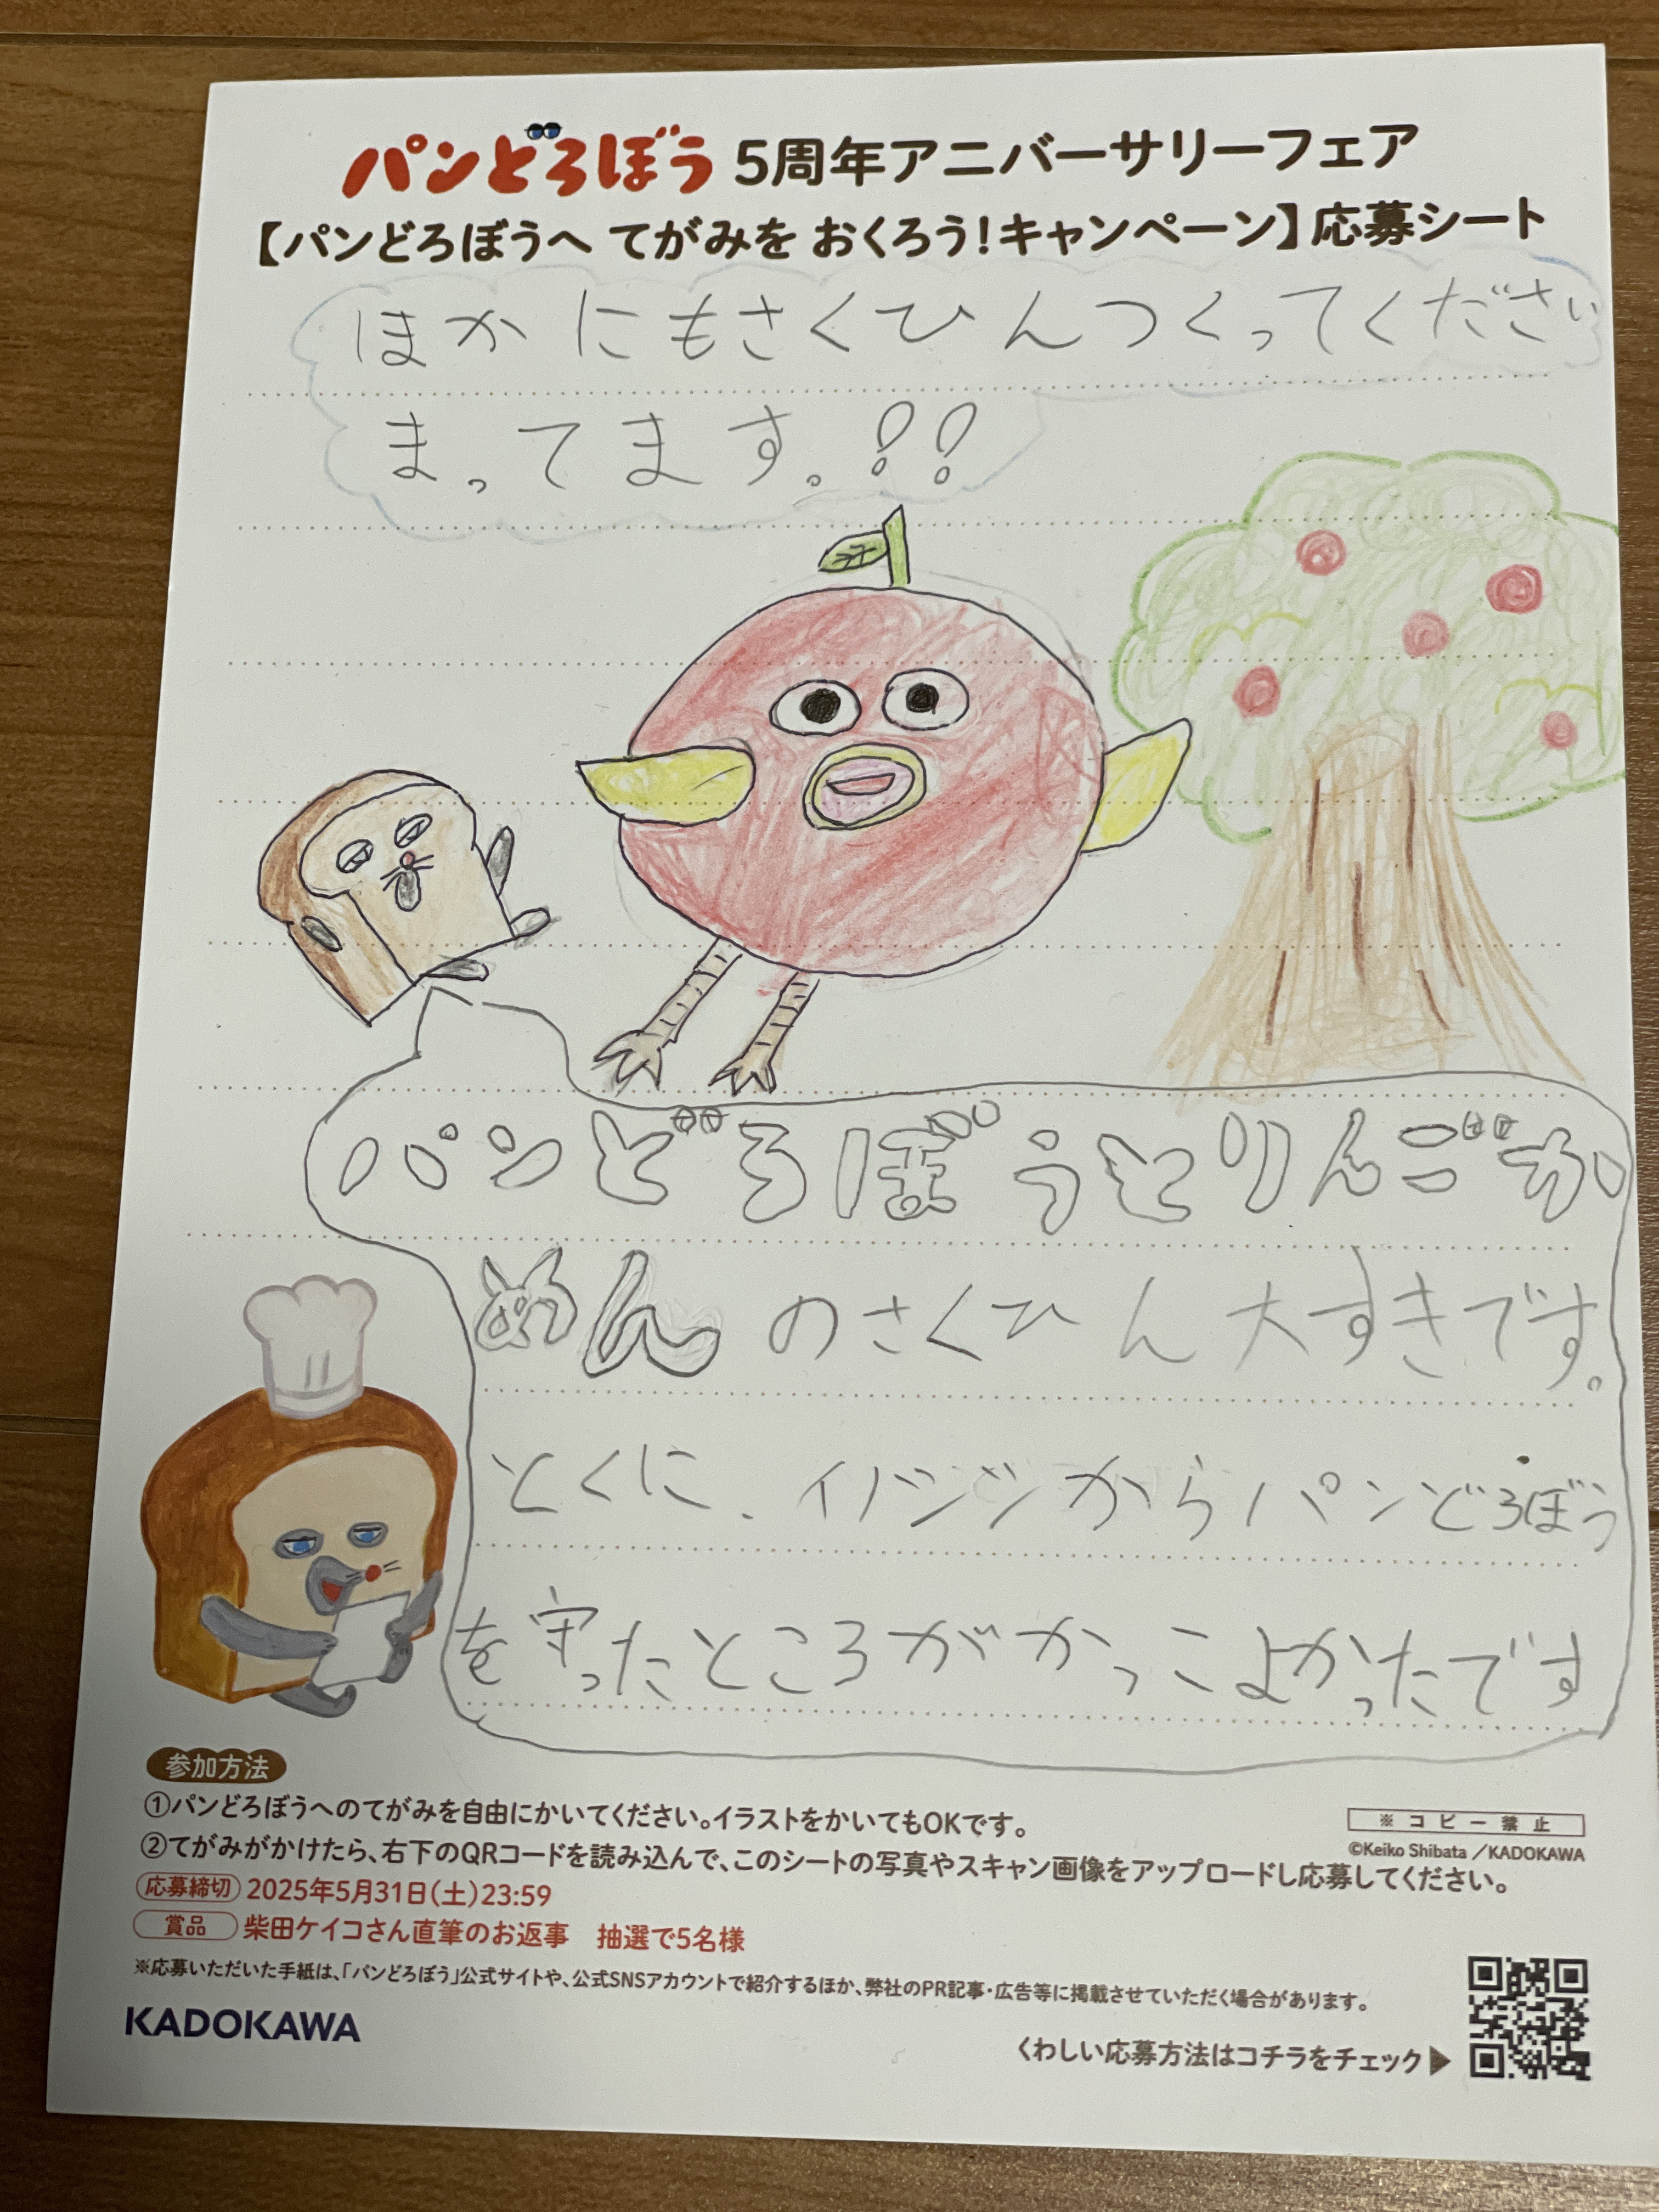 パンどろぼう 5周年アニバーサリーフェア
【パンどろぼうへ てがみを おくろう!キャンペーン】応募シート
ほかにもさくひんつくってください
まってます。!!
パンどろぼうとりんごか
めんのさくひん大すきです。
とくに、イノシシからパンどろぼう
を守ったところがかっこよかったです
参加方法
①パンどろぼうへのてがみを自由にかいてください。イラストをかいてもOKです。
②てがみがかけたら、右下のQRコードを読み込んで、このシートの写真やスキャン画像をアップロードし応募してください。
※コピー禁止
©Keiko Shibata/KADOKAWA
応募締切 2025年5月31日(土)23:59
賞品 柴田ケイコさん直筆のお返事 抽選で5名様
※応募いただいた手紙は、「パンどろぼう」公式サイトや、公式SNSアカウントで紹介するほか、弊社のPR記事・広告等に掲載させていただく場合があります。
KADOKAWA
くわしい応募方法はコチラをチェック▶